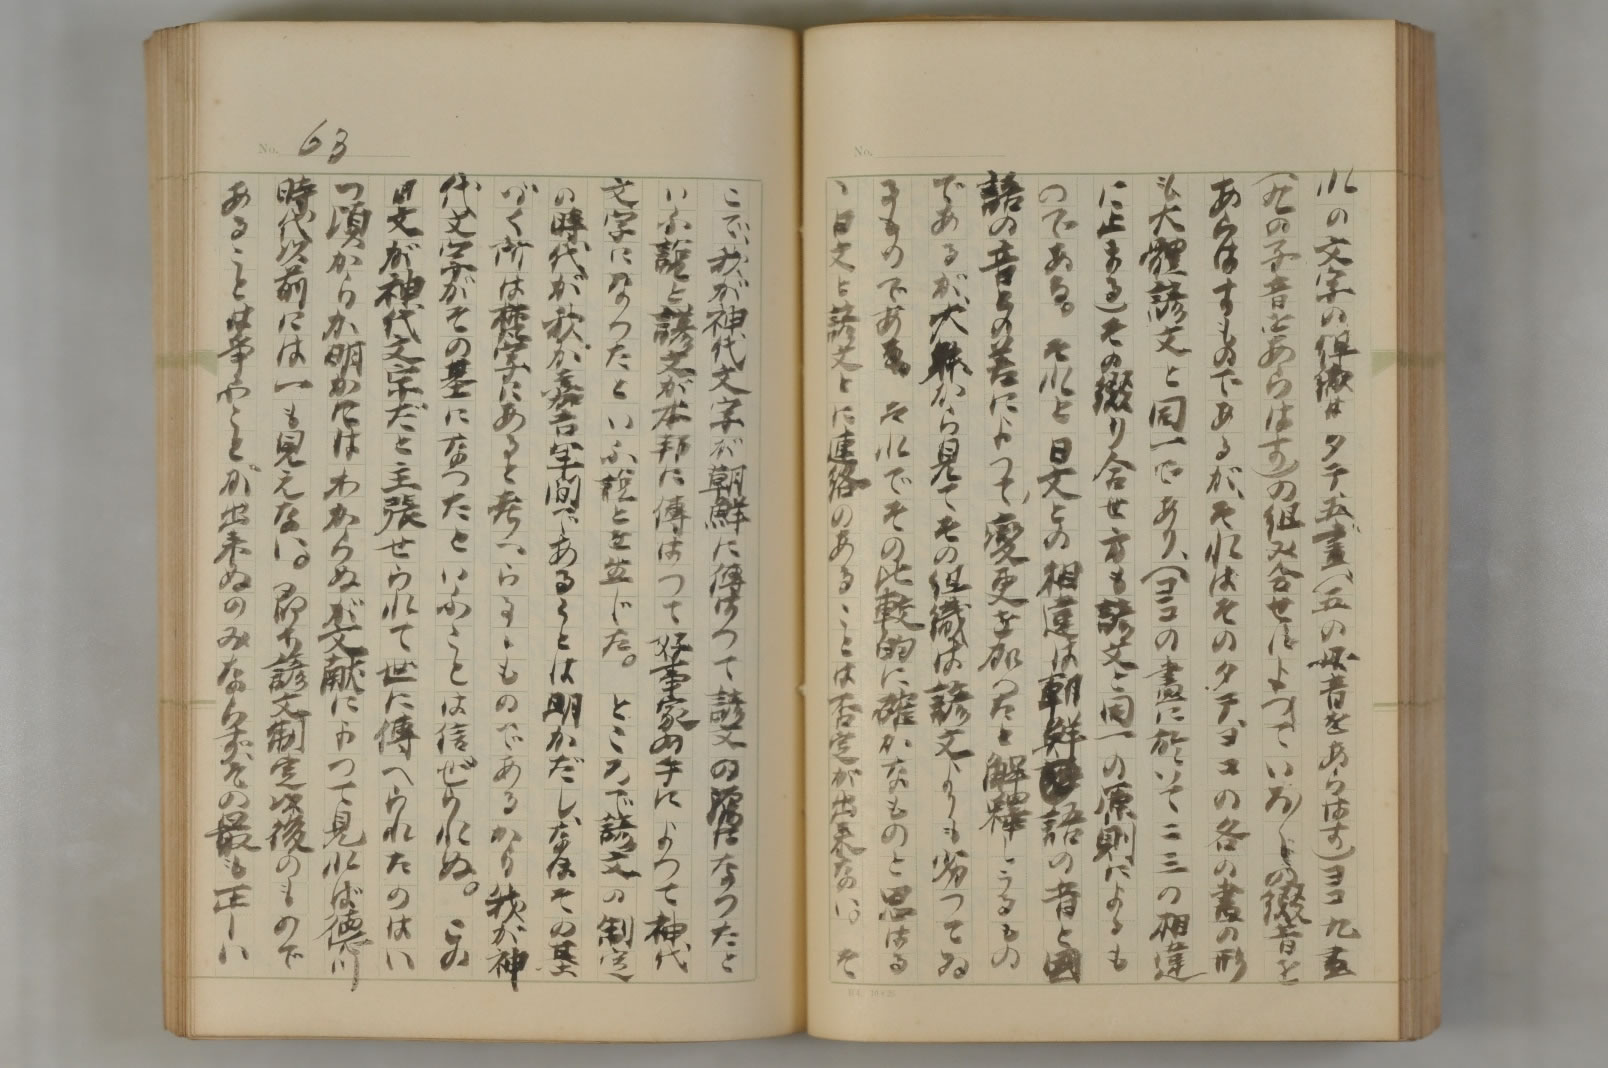 れの文字の組織はタテ五畫(五の母音をあらはす)ヨコ九畫
(九の子音をあらはす)の組み合せによつていろ〱の綴音を
あらはすものであるが、それはそのタテヨコの各の畫の形
も大體諺文と同一であり、(ヨコの畫に於いて二三の相違
に止まる)その綴り合せ方も諺文と同一の原則によるも
のである。それと日文との相違は朝鮮語の音と國
語の音との差によつて、變更を加へたと解釋しうるもの
であるが、大體から見てその組織は諺文よりも劣つてゐ
るものである。それでその比較的に確かなものと思はる
ゝ日文と諺文とに連絡のあることは否定が出来ない。そ
No.
こで、我が神代文字が朝鮮に傳はつて諺文の源になつたと
いふ説と諺文が本邦に傳はつて好事家の手によつて神代
文字になつたといふ説とを並じた。ところで諺文の制定
の時代が我が嘉吉年間であることは明かだし、なほその基
づく所は梵字にあると考へらるゝものであるから我が神
代文字がその基になつたといふことは信ぜられぬ。この
日文が神代文字だと主張せられて世に傳へられたのはい
つ頃からか明かにはわからぬが文献によつて見れば徳川
時代以前には一も見えない。即ち諺文制定以後のもので
あること は争ふことが出来ぬのみならずその最も正しい
No. 63